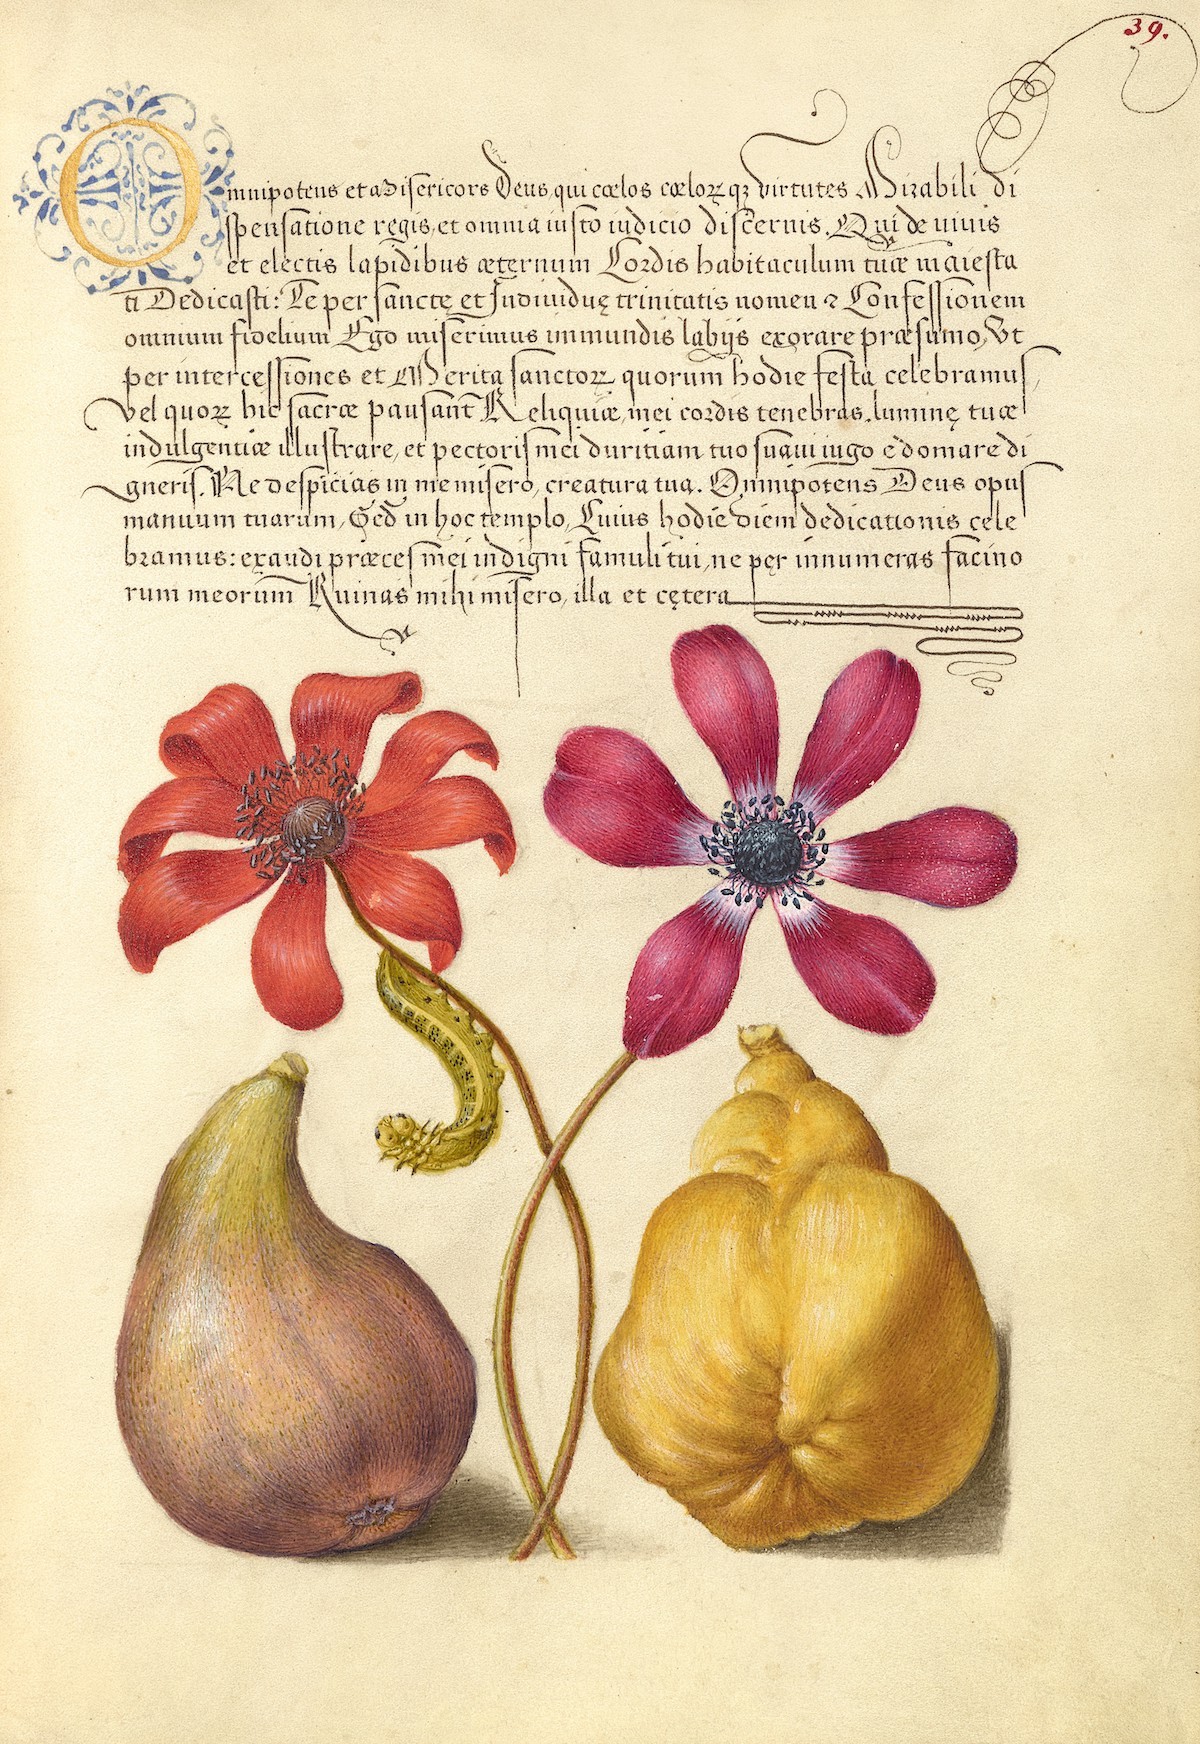 39.
Omnipotens et Misericors Deus, qui cœlos cœlorꝝ qꝫ virtutes Mirabili di
spensatione regis, et omnia iusto iudicio discernis. Qui de viuis
et electis lapidibus æternum Cordis habitaculum tuæ maiesta
ti Dedicasti: Te per sanctę et Indiuiduę trinitatis nomen ⁊ Confessionem
omnium fidelium Ego miserimus immundis labijs exorare præsumo, Vt
per intercessiones et Merita sanctorꝝ quorum hodie festa celebramus,
vel quorꝝ hic sacræ pausant Reliquiæ, mei cordis tenebras luminę tuæ
indulgentiæ illustrare, et pectoris mei duritiam tuo suaui iugo edomare di
gneris. Ne despicias in me misero, creatura tua. Omnipotens Deus opus
manuum tuarum, Sed in hoc templo, Cuius hodie diem dedicationis cele
bramus: exaudi præces mei indigni famuli tui, ne pęr innumeras facino
rum meorum Ruinas mihi misero, illa et cętera